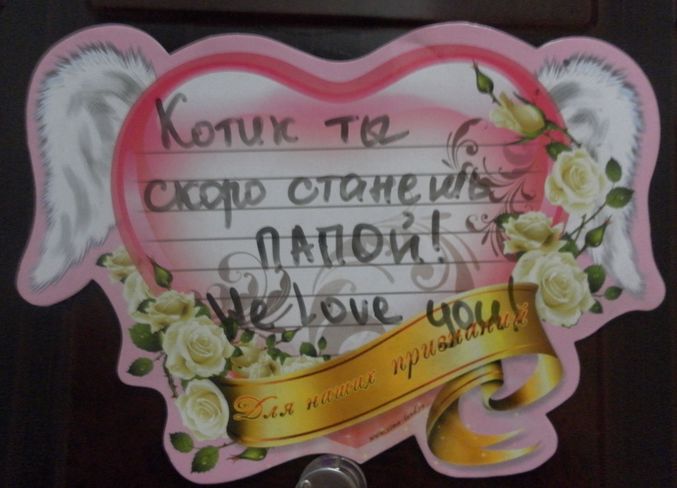 Котик ты
скоро станешь
ПАПОЙ!
We Love you!
Для наших признаний